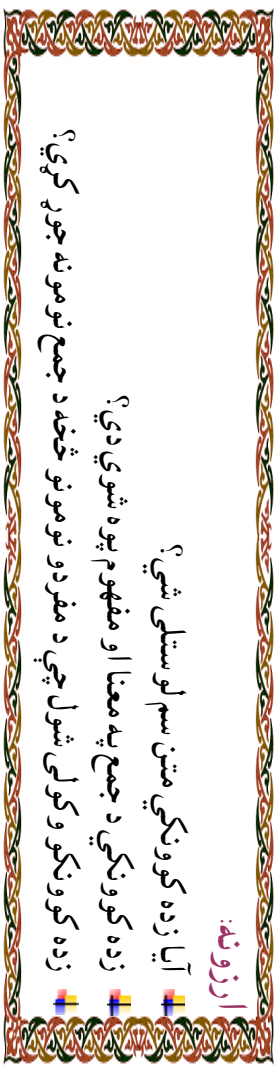 ارزونه:
آیا زده کوونکي متن سم لوستلی شي؟
زده کوونکي د جمع په معنا او مفهوم پوه شوي دي؟
زده کوونکو وکولی شول چې د مفردو نومونو څخه د جمع نومونه جوړ کړي؟